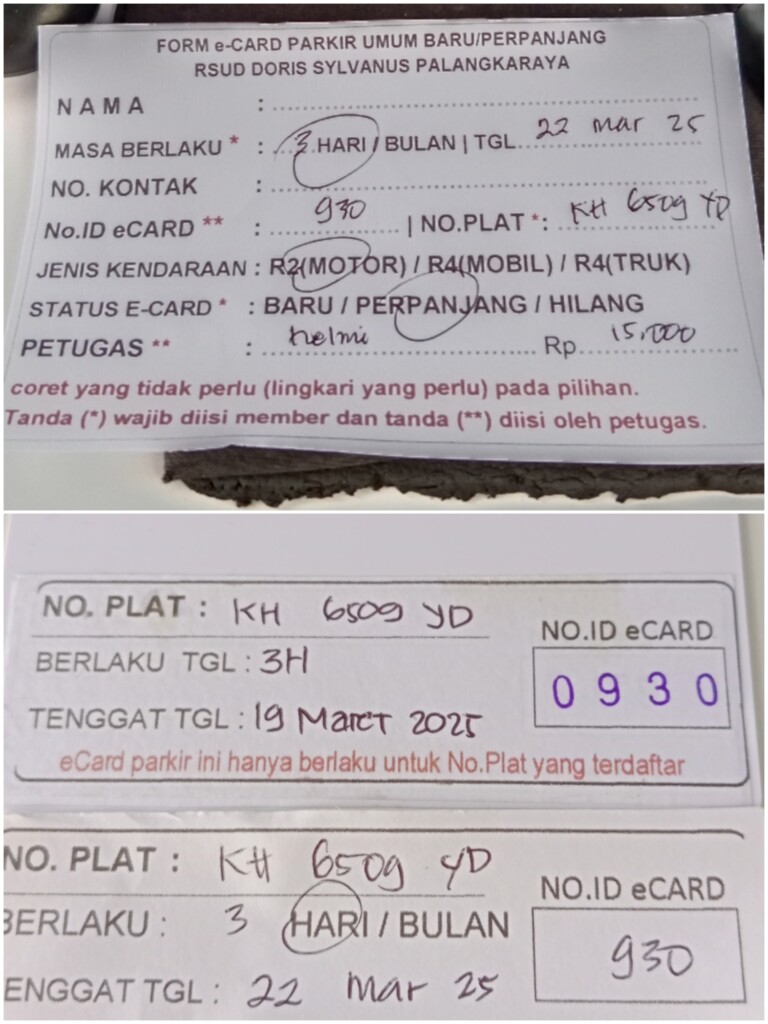 FORM e-CARD PARKIR UMUM BARU/PERPANJANG
RSUD DORIS SYLVANUS PALANGKARAYA
NAMA : ........................
MASA BERLAKU * : ..3.HARI / BULAN | TGL. 22 Mar 25
NO. KONTAK : ........................
No.ID eCARD ** : 930 | NO.PLAT *: KH 6509 YD
JENIS KENDARAAN : R2(MOTOR) / R4(MOBIL) / R4(TRUK)
STATUS E-CARD * : BARU / PERPANJANG / HILANG
PETUGAS ** : helmi Rp. 15.000
coret yang tidak perlu (lingkari yang perlu) pada pilihan.
Tanda (*) wajib diisi member dan tanda (**) diisi oleh petugas.
NO. PLAT : KH 6509 YD
NO.ID eCARD
BERLAKU TGL : 3H
0930
TENGGAT TGL : 19 Maret 2025
eCard parkir ini hanya berlaku untuk No.Plat yang terdaftar
NO. PLAT : KH 6509 YD
NO.ID eCARD
BERLAKU : 3 HARI / BULAN
930
ENGGAT TGL : 22 Mar 25